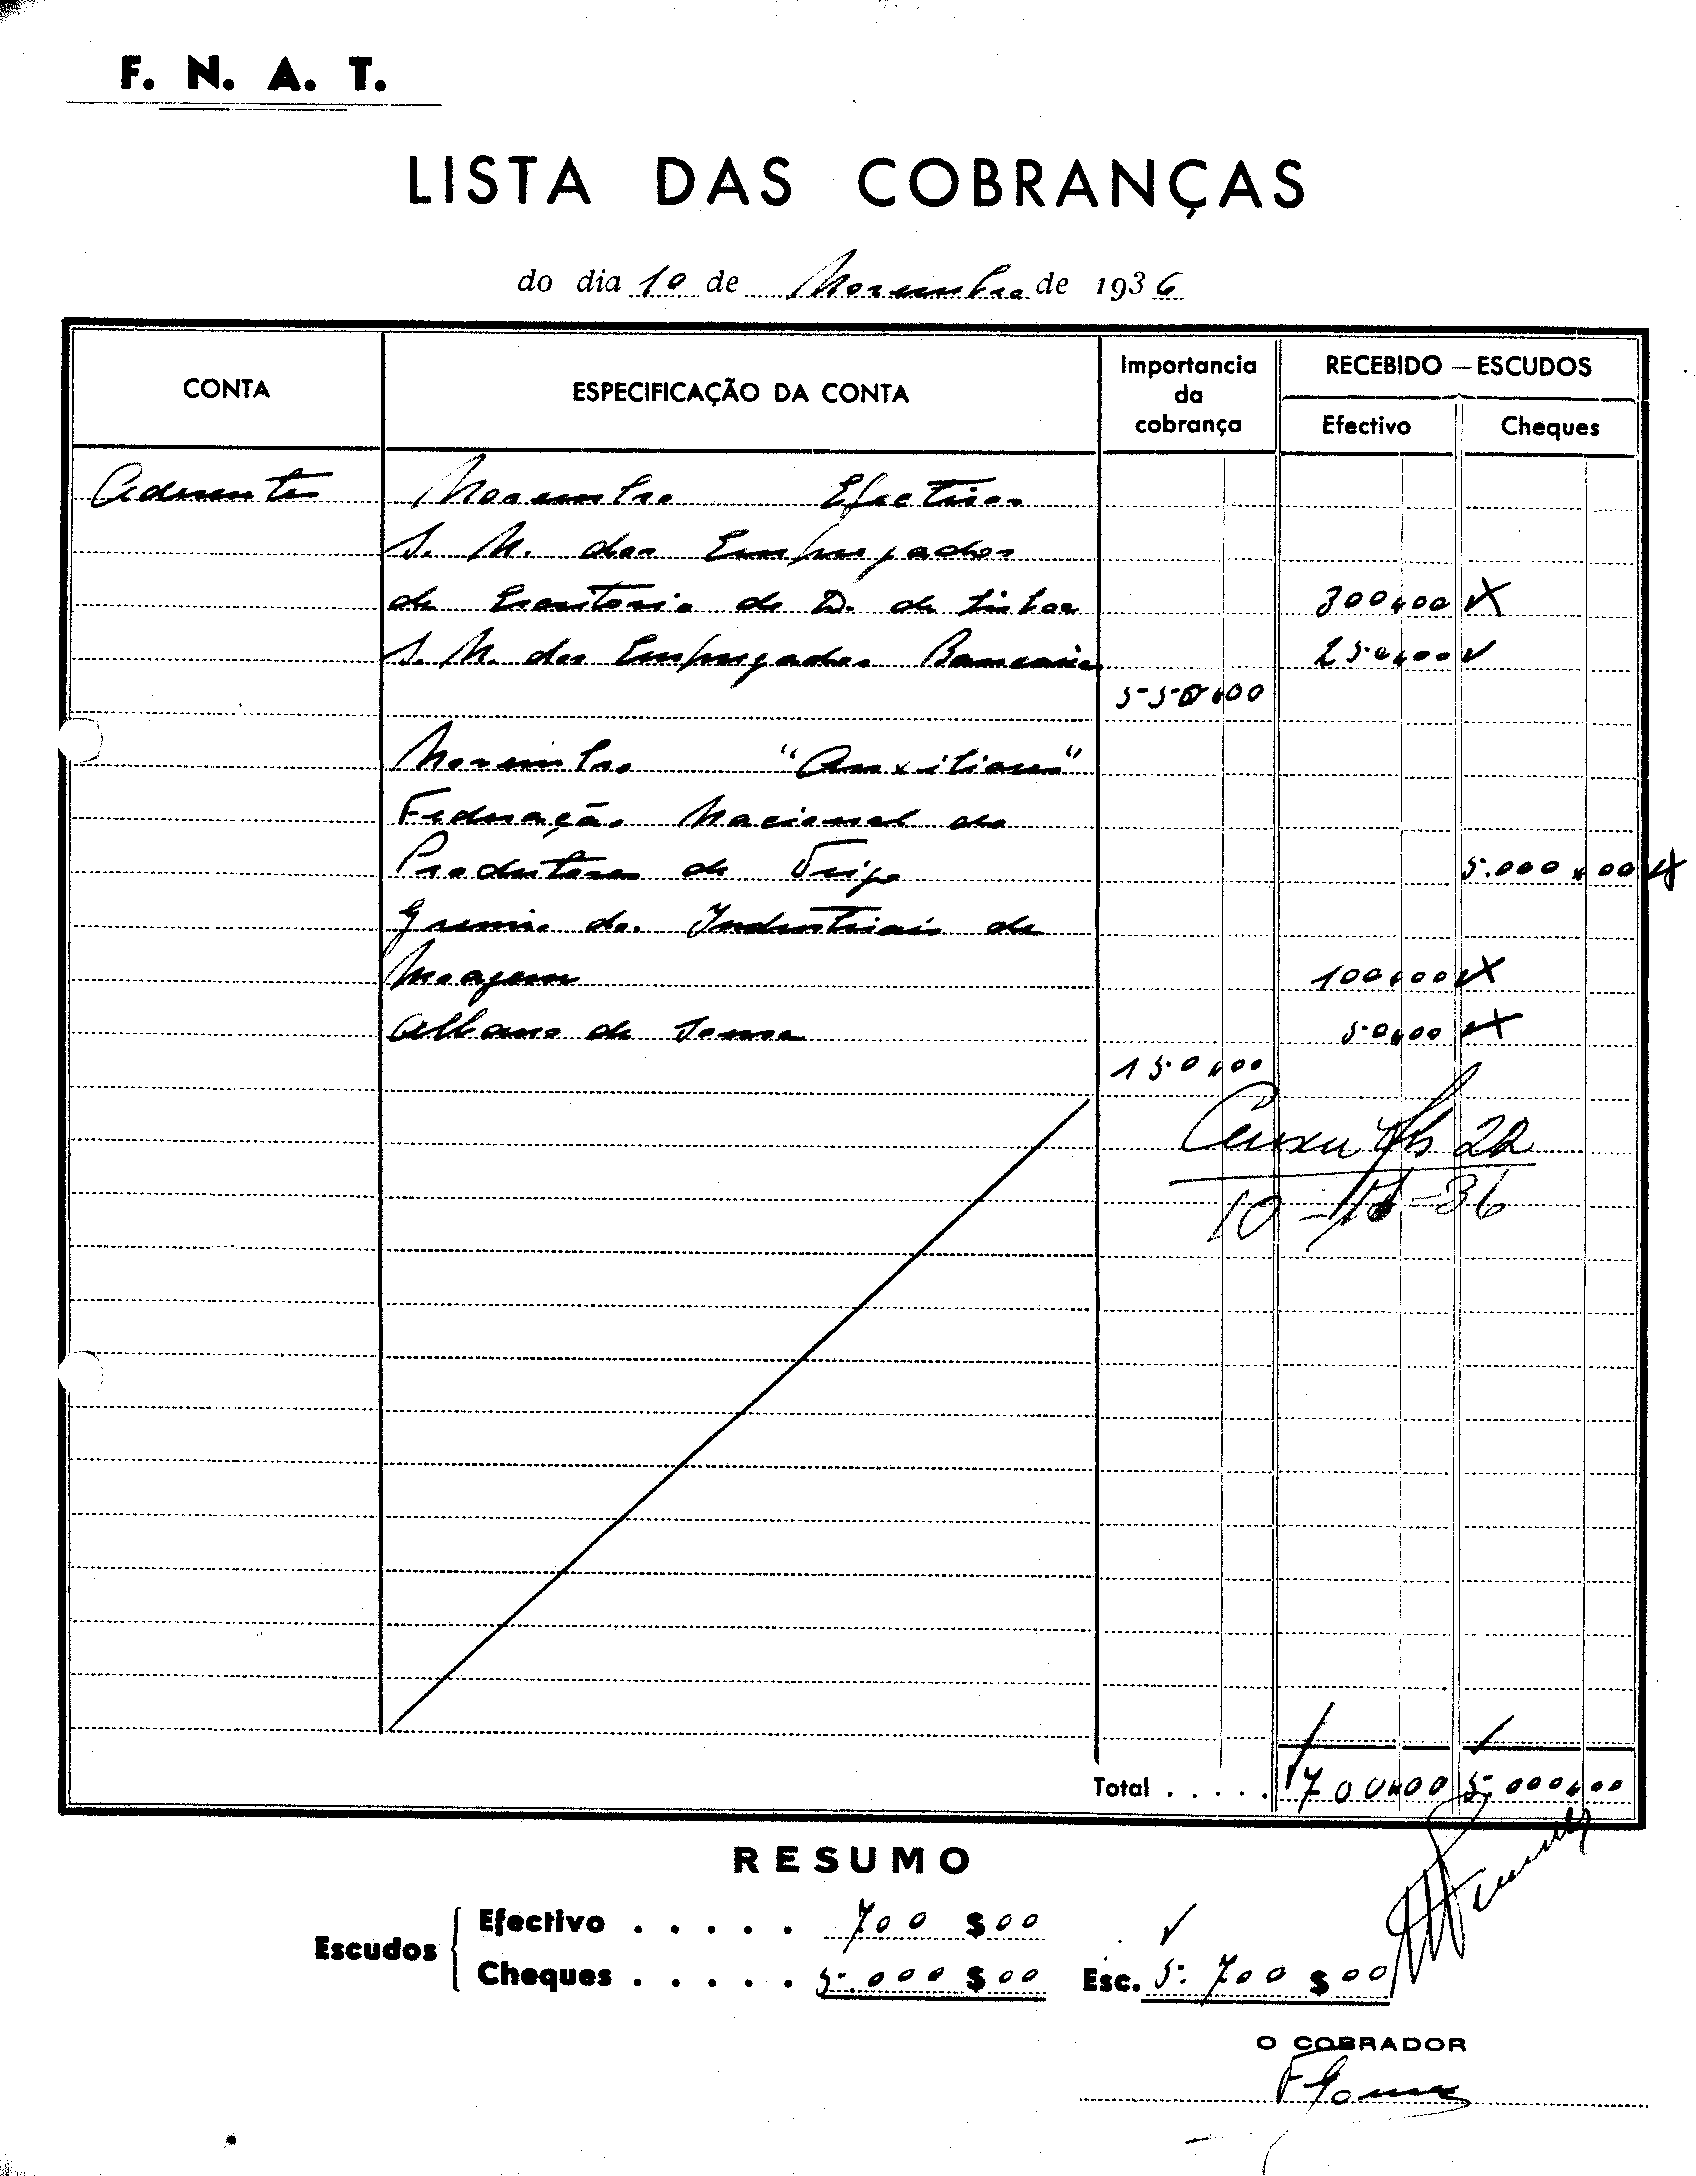 F. N. A. T.
LISTA DAS COBRANÇAS
do dia 10 de Novembro de 1936
CONTA
ESPECIFICAÇÃO DA CONTA
Importancia da cobrança
RECEBIDO — ESCUDOS
Efectivo
Cheques
Aderentes Novembro Efectivos
S. N. dos Empregados
de Escritorio do D. de Lisboa 300$00
S. N. dos Empregados Bancarios 250$00
550$00
Novembro "Auxiliares"
Federação Nacional dos
Produtores de Trigo 5.000$00
Gremio dos Industriais de
Moagem 100$00
Albano de Sousa 50$00
150$00
Caixa fls 22
10-11-36
Total . . . . . 700$00 5.000$00
RESUMO
Escudos
Efectivo . . . . . 700$00
Cheques . . . . . 5.000$00 Esc. 5.700$00
O COBRADOR